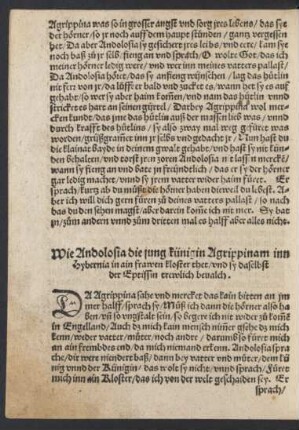 Agrippina was so in grosser angst vnd sorg jres lebens / das sye
der hörner / so jr noch auff dem haupt stůnden / gantz vergessen
het. Da aber Andolosia sy gesichert jres leibs / vnd eere / kam sye
noch baß zů jr selb, fieng an vnd sprach / O wolt Got, das ich
meiner hörner ledig wer / vnd wer inn meines vatters pallast /
Da Andolosia hôrt, das sy anfieng wünschen / lag das hůtlin
nit fert von jr / da lůff er bald vnd zuckt es / wann het sy es auff
gehabt / so wer sy aber haim komen / vnd nam das hůtlin vnnd
strickt es hart an seinen gürtel / Darbey Agrippina wol mer-
cken kundt / das jme das hůtlin auß der massen lieb was / vnnd
durch krafft des hůtlins / sy also zway mal weg gefüret was
worden / gedacht jr / Nun hast du
die klainat bayde in deinem gwalt gehabt / vnd hast sy nit kün-
den behalten / vnd torst jren zoren Andolosia nit lassen mercke /
wann sy fieng an vnd batt jn freündtlich / das er jr der hörner
gar ledig macht, vnnd sy jrem vater wider haim füret. Er
sprach / kurtz ab du můst die hörner haben dieweil du lebest. A-
ber ich will dich gern füren zů deines vatters pallast / so nach
das du den sehen magst / aber darein kom ich nit mer. Sy bat
jn / zům andern vnnd zům dritten mal es halff aber alles nicht.
Wie Andolosia die jung künigin Agrippinam inn
Hybernia in ain frawen kloster thet / vnd sy daselbst
der Eptissin trewlich beualch.
DA Agrippina sahe vnd merckt das kain bitten an jm
mer halff, sprach sy Můß ich dann die hörner also ha-
ben vñ so vngstalt sein, so beger ich nit wider zů komẽ
in Engelland / Auch dz mich kain mensch nimer gsehe dz mich
kenn / weder vatter / můter, noch andre / darumb so fürt mich
an ain frembdes end, da mich niemand erkenn. Andolosia spra
che / dir were niendert baß / dann bey vatter vnd můter / dem kü
nig vnnd der Künigin / das wolt sy nicht. vnnd sprach / Fürt
mich inn ain Kloster / das ich von der welt gescheiden sey. Er
sprach /